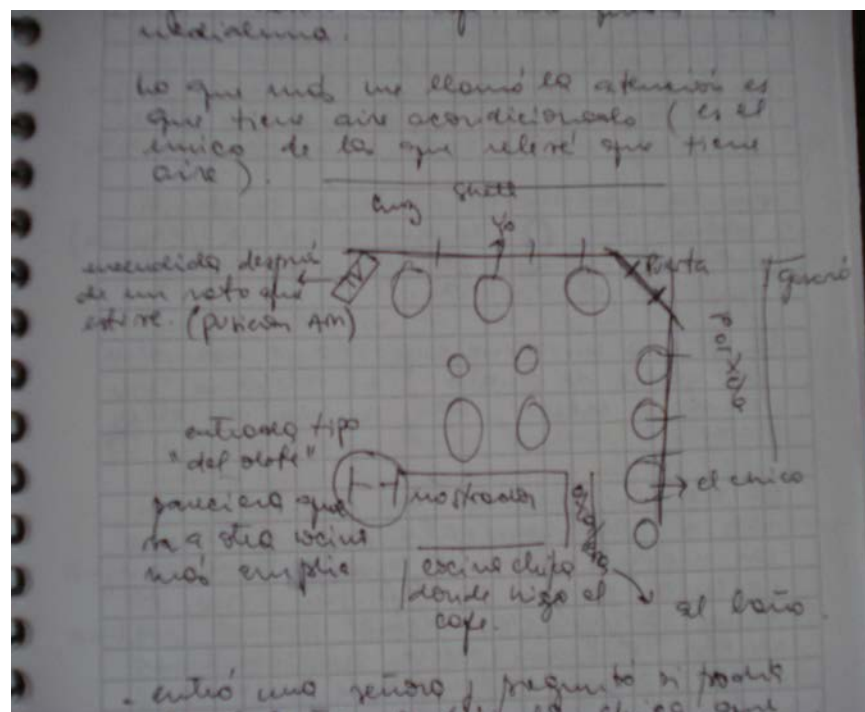 medialuna.
Lo que más me llamó la atención es
que tiene aire acondicionado (es el
único de los que relevé que tiene
aire).
Yo
Puerta
TV
encendida después
de un rato que
estuve. (pusieron AM)
entrada tipo
"del oeste"
pareciera que
va a otra cocina
más amplia
mostrador
el chico
escalera
cocina chica
donde hizo el
café.
al baño.
. entró una señora, preguntó si podía